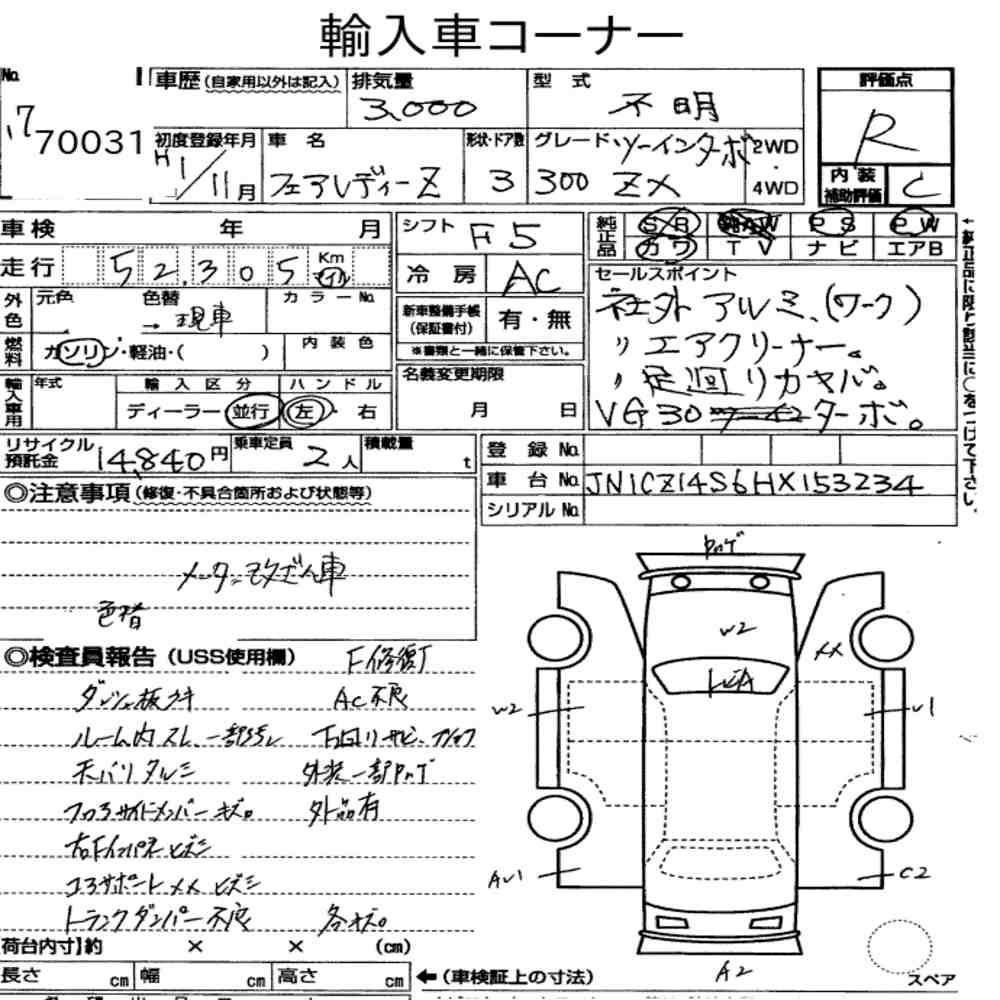 輸入車コーナー
No. 車歴(自家用以外は記入) 排気量 3,000 型式 不明 評価点 R
70031 初度登録年月 H1/11月 車名 フェアレディーZ 形状・ドア数 3 グレード ツーインターボ 300 ZX 2WD・4WD
内装補助評価 C
車検 年 月 シフト F5 純正品 SR AW PS PW
カワ TV ナビ エアB
走行 52,305 Km マイル 冷房 AC セールスポイント
外色 元色 色替 → 現車 カラーNo. 新車整備手帳(保証書付) 有・無 社外アルミ.(ワーク)
燃料 ガソリン・軽油・( ) 内装色 ※書類と一緒に保管下さい。 〃 エアクリーナー。
輸入車用 年式 輸入区分 ハンドル 名義変更期限 〃 足廻リカヤバ。
ディーラー 並行 左・右 月 日 VG30 ターボ。
←純正品に限り該当に○をつけて下さい。
リサイクル預託金 14,840円 乗車定員 2人 積載量 t 登録No.
車台No. JN1CZ14S6HX153234
シリアルNo.
◎注意事項(修復・不具合箇所および状態等)
メーター改ざん車
色替
◎検査員報告(USS使用欄) F修復
ダッシュ板ウキ AC不良
ルーム内スレ、一部 下回りサビ、
天バリタルミ 外装一部ハゲ
サイドメンバーキズ。 外品有
右Fインパネヒズミ
コアサポートXXヒズミ
トランクダンパー不良 各キズ。
ハゲ
W2
XX
W2
U1
AU1
C2
A2
スペア
荷台内寸】約 × × (cm)
長さ cm 幅 cm 高さ cm ←(車検証上の寸法)